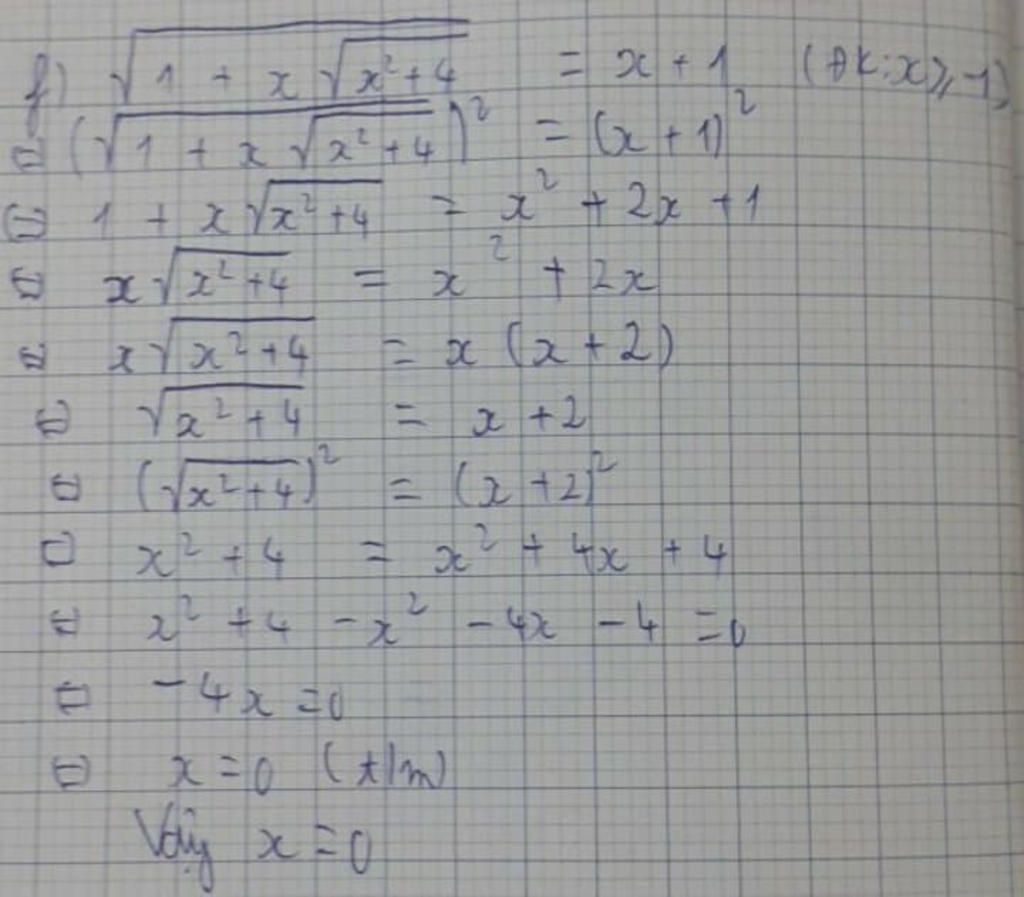 f) √(1 + x√(x²+4)) = x + 1 (ĐK: x ≥ -1)
⇔ (√(1 + x√(x²+4)))² = (x + 1)²
⇔ 1 + x√(x²+4) = x² + 2x + 1
⇔ x√(x²+4) = x² + 2x
⇔ x√(x²+4) = x (x + 2)
⇔ √(x²+4) = x + 2
⇔ (√(x²+4))² = (x + 2)²
⇔ x² + 4 = x² + 4x + 4
⇔ x² + 4 - x² - 4x - 4 = 0
⇔ -4x = 0
⇔ x = 0 (t/m)
Vậy x = 0